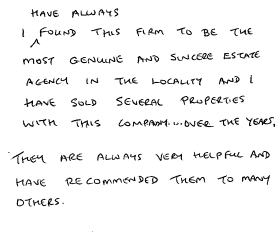 HAVE ALWAYS
I ^ FOUND THIS FIRM TO BE THE
MOST GENUINE AND SINCERE ESTATE
AGENCY IN THE LOCALITY AND I
HAVE SOLD SEVERAL PROPERTIES
WITH THIS COMPANY...OVER THE YEARS.
THEY ARE ALWAYS VERY HELPFUL AND
HAVE RECOMMENDED THEM TO MANY
OTHERS.